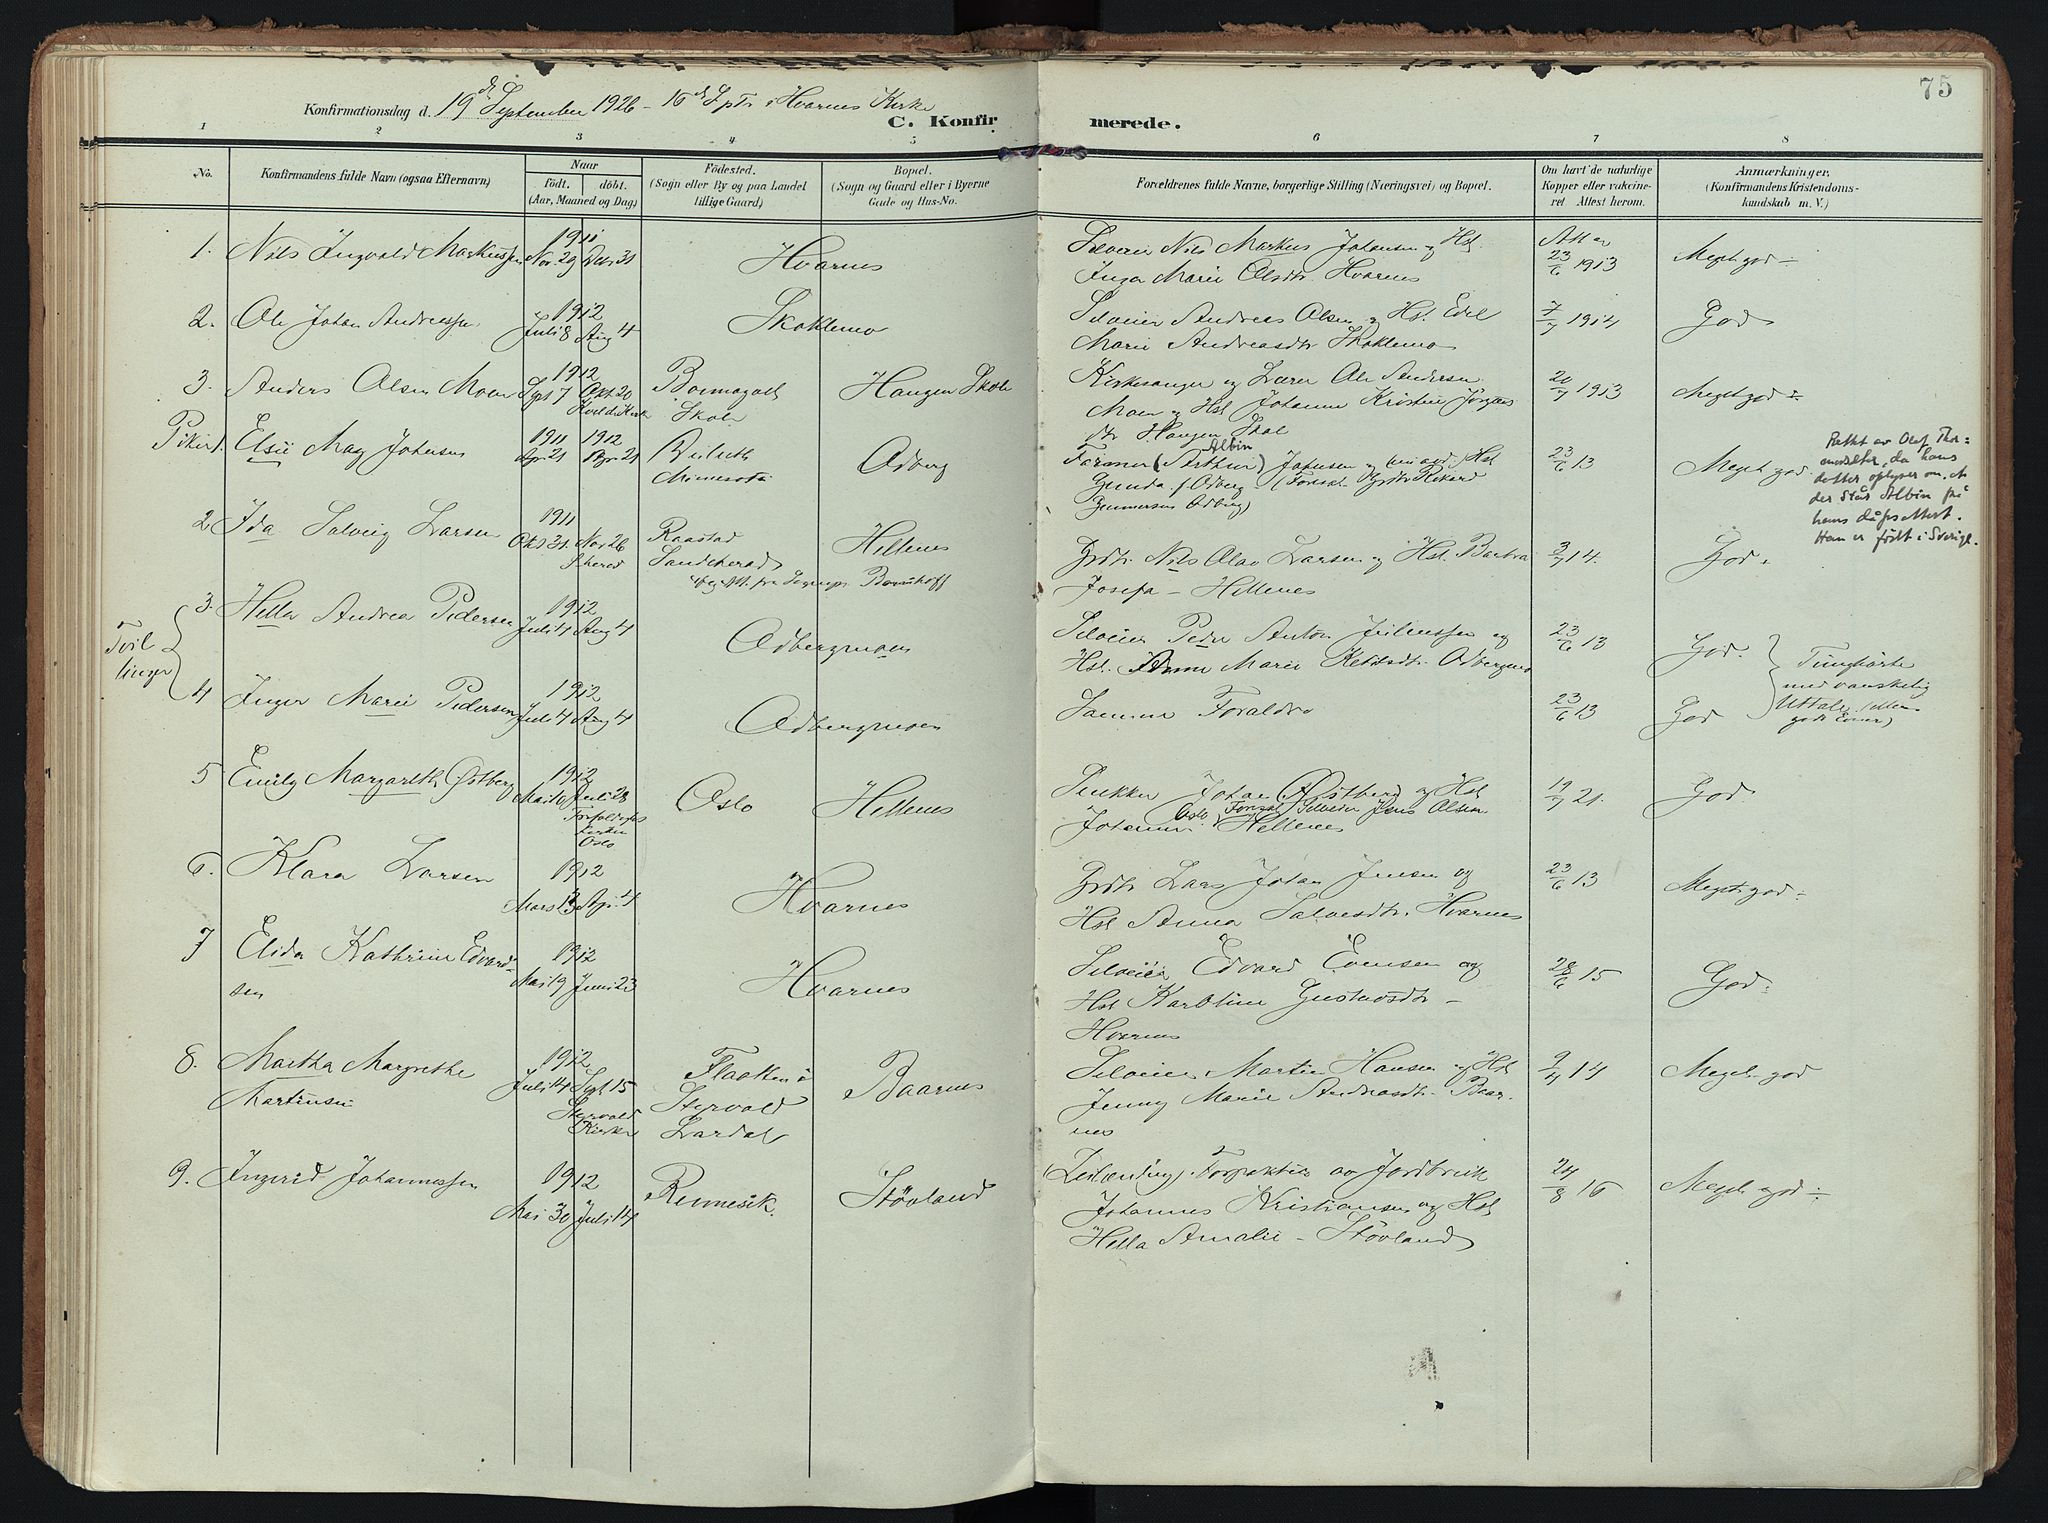 75
Konfirmationsdag d. 19de September 1926 - 16de S. p. Tr. i Hvarnes Kirke
C. Konfirmerede.
1 2 3 4 5 6 7 8
No.
Konfirmandens fulde Navn (ogsaa Efternavn)
Naar
født. døbt.
(Aar, Maaned og Dag)
Fødested.
(Sogn eller By og paa Landet
tillige Gaard)
Bopæl.
(Sogn og Gaard eller i Byerne
Gade og Hus-No.
Forældrenes fulde Navne, borgerlige Stilling (Næringsvei) og Bopæl.
Om havt de naturlige
Kopper eller vakcine-
ret Attest herom.
Anmærkninger.
(Konfirmandens Kristendoms-
kundskab m. V.)
1. Nils Ingvald Markussen 1911 Nov. 29 Dec 31 Hvarnes
Selveier Nils Markus Johansen og Hst.
Inga Marie Olsdtr. Hvarnes
23/6 1913 Meget god ÷
2. Ole Johan Andreassen 1912 Juli 8 Aug 4 Skoklemo
Selveier Andreas Olsen og Hst. Edel
Marie Andreasdtr. Skoklemo
7/7 1914 God
3. Anders Olsen Moen 1912 Sept 7 Okt 20 Skole Haugen Skole
Kirkesanger og Lærer Ole Andersen
Moen og Hst Johanne Kristine Jørgens
dtr. Haugen Skol
20/7 1913 Meget god ÷
Piker 1. Elsie May Johansen 1911 1912 Apr. 21 Apr. 21
Minesota Odberg
Farmer (Arthur) Albin Johansen og Hst
Gunda f. Odberg - (Forsat Gaardbr Rikard
Gunnersen Odberg)
23/6 13 Meget god
Rettet av Olaf Thor=
modsæter, da hans
dotter oplyser om at
der står Albin på
hans dåpsattest.
Han er født i Sverige.
2 Ida Solveig Larsen 1911 Okt 31. Nov 26 Sherad
Raastad
Sandeherad Hellenes
Grdbr. Nils Olav Larsen og Hst. Barbra
Josefa - Hellenes
3/7 14. God.
Tvil
linger
3. Hella Andrea Pedersen 1912 Juli 4 Aug 4
Odbergmoen
Selveier Peder Anton Juliussen og
Hst. Anne Marie Ketilsdtr. Odbergmo
23/6 13 God.
Tunghørte
med vanskelig
Uttale
4 Inger Marie Pedersen 1912 Juli 4 Aug 4
Odbergmoen
Samme Forældre
23/6 13 God
5 Emily Margareth Østberg 1912 Mai 10 Juli 28
Oslo
Oslo Hellenes
Snekker Johan Østberg og Hst
Johanne Oslo Forsat Selveier Jens Olsen
Hellenes
19/7 21. God
6. Klara Larsen 1912
Mars 13 Apr. 4 Hvarnes
Grdbr Lars Johan Jensen og
Hst Anna Salvesdtr. Hvarnes
23/6 13 Meget god ÷
7 Elida Kathrine Edvard=
sen 1912 Mai 19 Juni 23 Hvarnes
Selveier Edvard Evensen og
Hst Karoline Gustavsdtr -
Hvarnes
28/6 15 God÷
8. Martha Margrethe
Martinsen 1912 Juli 14 Sept 15
Styrvold
Kirke
Flaatten i
Styrvold
Lardal Baarnes
Selveier Martin Hansen og Hst
Jenny Marie Andreasdtr. Baar-
nes
2/7 14 Meget god
9. Ingerid Johannessen 1912
Mai 30 Juli 14 Rimmesik Støvland
(Leilænding) Forpakter av Jordbruk
Johannes Kristiansen og Hst
Hella Amalie - Støvland
24/8 16 Meget god ÷